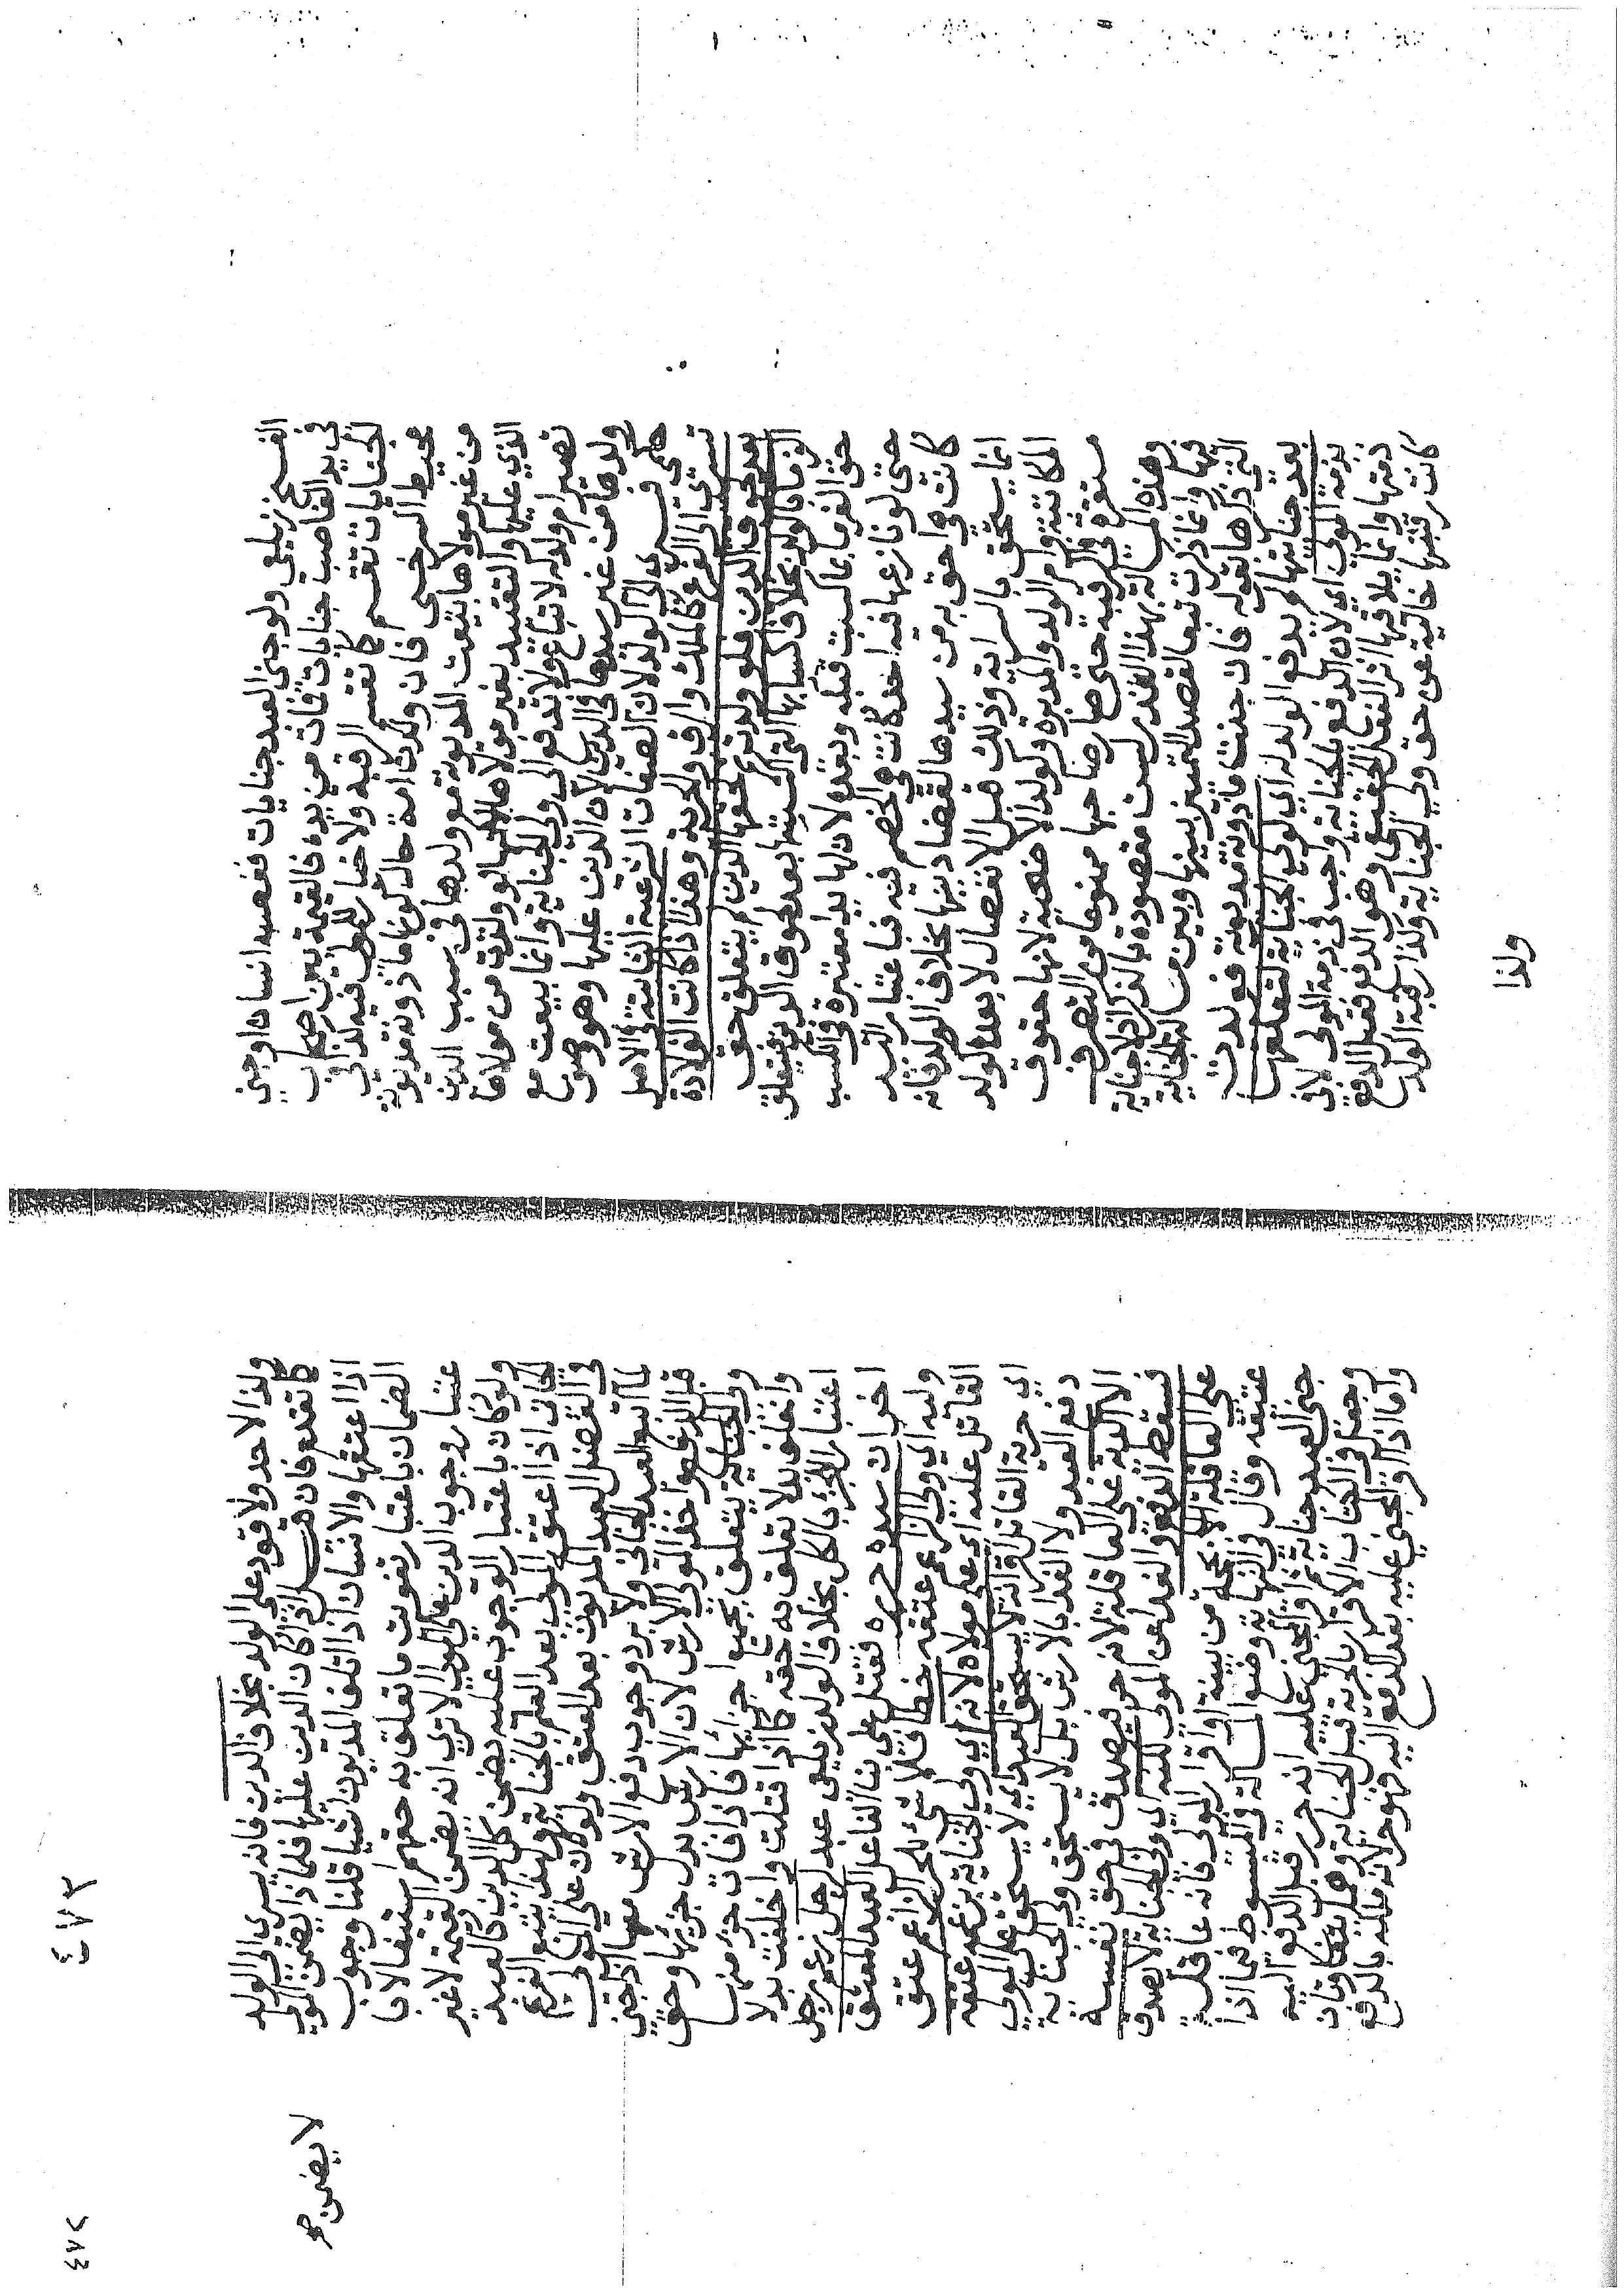 الفسخ زيلعي ولو جنى العبد جنايات فغصبه انسان او جنى
في يد الغاصب جنايات فمات من يده فالقيمة بين اصحاب
الجنايات تقسم كما تقسم الرقبة ولا خيار للمولى فيه لذا في
محيط السرخسي فان ولدت امة حال كونها مأذونة مديونة
من غير مولاها بيعت المديونة مع ولدها في سبب الدين
الذي عليها والتقييد بغير مولاها لانها لو ولدت من مولاها
تصير ام ولد له لا تباع ولا تدفع الى ولي الجناية وانما بيعت مع
ولدها من غير سيدها في الدين لان الدين عليها وهو وصف
حكمي فيسري الى الولد لان الصفات الشرعية الثابتة في الاصل
تسري الى الفرع كالملك والرق والحرية وهذا اذا كانت الولادة
بعد لحوق الدين فلو ولدت ثم لحقها الدين لم يتعلق حق
الغرماء بالولد بخلاف اكسابها التي اكتسبتها بعد لحوق الدين فيتعلق
حق الغرماء بما كسبت قبله وبعده لان لها يدا معتبرة في الكسب
حتى لو نازعها فيه احد كانت هي الخصم فيه فباعتبار اليد
كانت هي احق به من سيدها لقضاء دينها بخلاف الولد فانه
انما يستحق بالسراية وذلك قبل الانفصال لا بعده كولد
المكاتبة وام الولد والمدبرة وكولد الاضحية لانها حقوق
مستقرة في الرقبة حتى صار صاحبها ممنوعا من التصرف
وهذه المسالة بهذا القدر ليست مقصودة بالذكر اذ لا جناية
فيها وانما ذكرت تبعا لقصد التمييز بينها وبين مسالة الجناية
التي ذكرها بقوله فان جنت مأذونة مديونة فولدت
بعد جنايتها لم يدفع الولد له اي لولي الجناية لتعلقها
بذمة المولى اي لان الدفع بالجناية وجب في ذمة المولى لا في
ذمتها وانما يلاقيها اثر الفعل الحقيقي وهو الدفع فقبل الدفع
كانت رقبتها خالية عن حق ولي الجناية ولذا رقبة الولد
ولذا
ولذا لا حد ولا قود على الولد بخلاف الدين فانه يسري الى الولد
كما تقدم فان قيل اذا كان الدين عليها فلماذا يضمن المولى
اذا اعتقها والانسان اذا اتلف المديون شيئا قلنا وجوب
الضمان باعتبار تفويت ما تعلق به حقهم استيفاء لا با
عتبار وجوب الدين على المولى الا ترى انه يضمن القيمة لا غير
ولو كان باعتبار الوجوب عليه يضمن كل الدين كالعبد
الجاني اذا اعتقه المولى بعد العلم بالجناية
في القضل العبد المديون بعد العتق ولو كان على المولى
لما اتبع العبد الجاني ولا يرد وجوب دفع الارش معها اذ جني
قبل الدفع واخذ المولى الارش لان الارش بدل جزئها وحق
ولي الجناية يتعلق بجميع اجزائها فاذا فات جزء منها
واخلف بدلا تعلق به حقه كما اذا قتلت واخلفت بدلا
اعتبارا للجزء بالكل بخلاف الولد زيلعي عبد لرجل زعم رجل
اخر ان سيده حرره فقتل على بناء الفاعل العبد المعتق
وليه اي ولي الزاعم عتقه خطأ فلا شيء للحر الزاعم عتق
القاتل عليه اي على مولاه لانه اي ولي الجناية بزعمه عتقه
اي حرية القاتل اقر انه لا يستحق العبد اي لا يستحق على المولى
دفع العبد ولا الفداء بالارش بل لا يستحق ولي الجناية
الا الدية على العاقلة لانه حر فيصدق في حق نفسه
فيسقط الدفع والفداء عن المولى لكنه اي ولي الجناية لا يصدق
على العاقلة الا بحجة من بينة او اقرار المولى فانه عاقلة
عتيقه وقال في النهاية وضع المسالة في المبسوط فيما اذا
جنى العبد جناية ثم اقر المجني عليه انه حر قبل الدفع اليه
وجعل في الكتاب الاقرار بالحرية قبل الجناية وهما لا يتفاوتان
واما اذا اقر المجني عليه بعد الدفع اليه فهو حر لانه ملكه بالدفع
لا يضمن صح
٤٧٣
٤٧٢